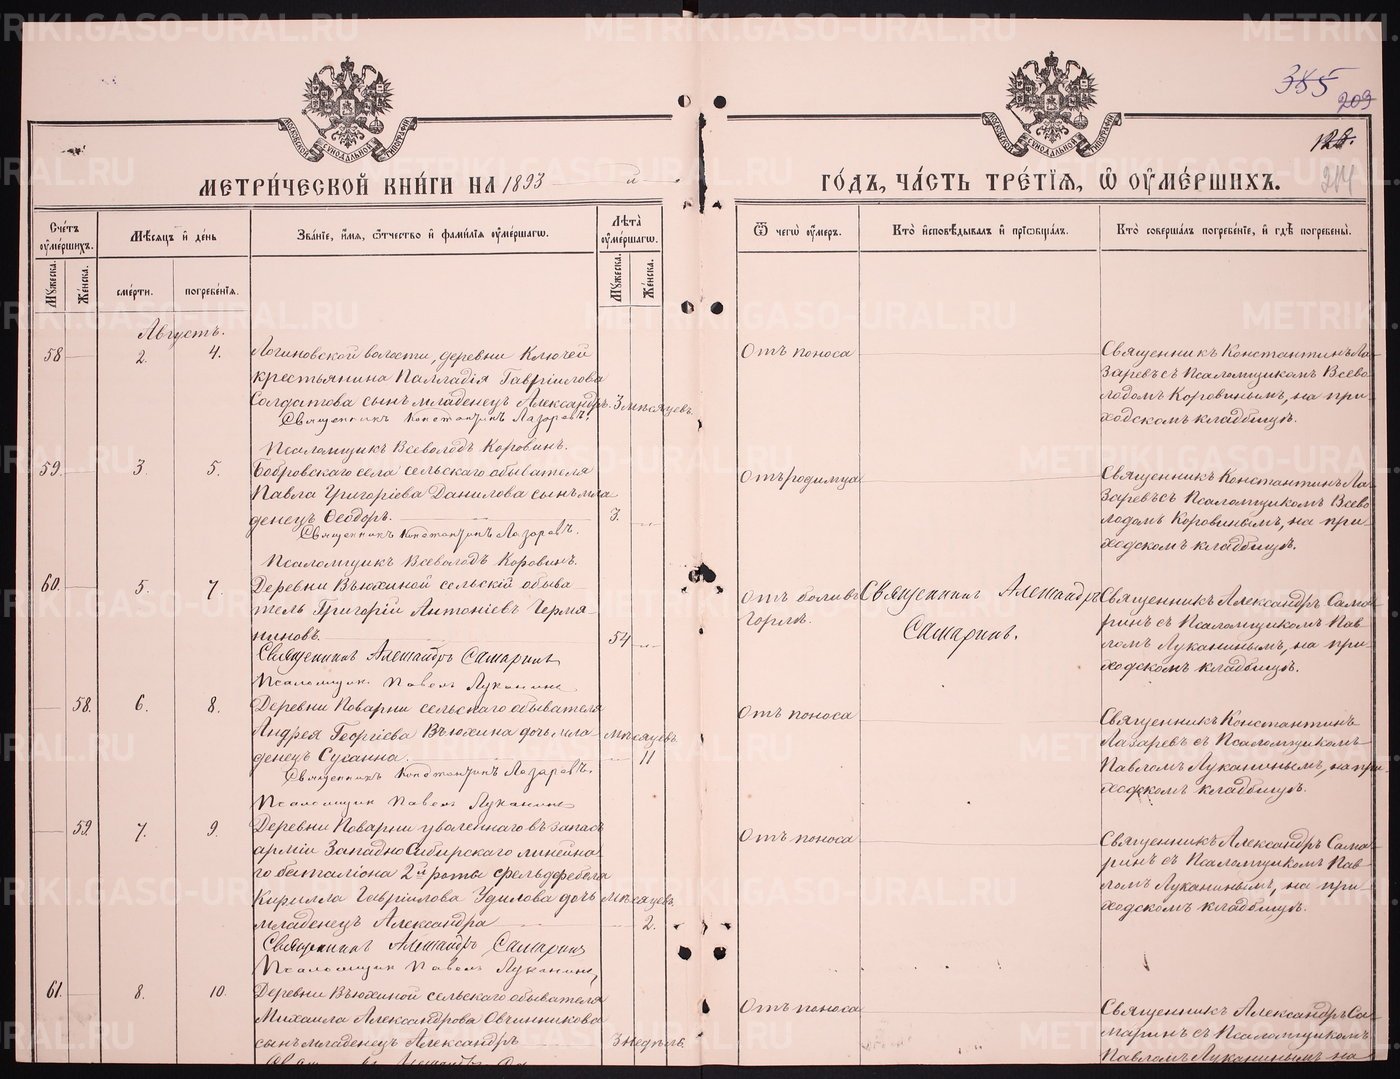 МЕТРИ́ЧЕСКОЙ КНИ́ГИ НА 1893 й
ГО́ДЪ, ЧА́СТЬ ТРЕ́ТІЯ, Ѡ ОУМЕ́РШИХЪ.
385
209
МОСКОВСКОЙ СѴНОДАЛЬНОЙ ТИПОГРАФІИ
МОСКОВСКОЙ СѴНОДАЛЬНОЙ ТИПОГРАФІИ
Сче́тъ оуме́ршихъ.
Мѣсяцъ й де́нь
Зва́ніе, и́мя, ѻ́тчество й фами́лія оуме́ршагѡ.
Лѣта̀ оуме́ршагѡ.
Ѿ чегѡ̀ оу́меръ.
Кто̀ и҆сповѣ́дывалъ й прїѡбща́лъ.
Кто̀ соверша́лъ погребе́ніе, й гдѣ̀ погребены̀.
Му́жеска.
Же́нска.
сме́рти.
погребе́нїя.
Му́жеска.
Же́нска.
Августъ.
58 2. 4. Логиновской волости, деревни Ключей
крестьянина Палладія Гавріилова
Солдатова сынъ младенецъ Александръ. 3 мѣсяцевъ.
Священникъ Константинъ Лазаревъ.
Псаломщикъ Всеволодъ Коровинъ.
Отъ поноса
Священникъ Константинъ Ла-
заревъ съ Псаломщикомъ Всево-
лодомъ Коровинымъ, на при-
ходскомъ кладбищѣ.
59. 3. 5. Бобровскаго села сельскаго обывателя
Павла Григоріева Данилова сынъ мла
денецъ Ѳеодоръ. 3.
Священникъ Константинъ Лазаревъ.
Псаломщикъ Всеволодъ Коровинъ.
Отъ родимца
Священникъ Константинъ Ла-
заревъ съ Псаломщикомъ Всево-
лодомъ Коровинымъ, на при-
ходскомъ кладбищѣ.
60. 5. 7. Деревни Вьюхиной сельскій обыва
тель Григорій Антоніевъ Чермя-
ниновъ 54
Священникъ Александръ Самаринъ
Псаломщикъ Павелъ Луканинъ
Отъ боли въ
горлѣ.
Священникъ Александръ
Самаринъ.
Священникъ Александръ Сама-
ринъ съ Псаломщикомъ Пав-
ломъ Луканинымъ, на при-
ходскомъ кладбищѣ.
58. 6. 8. Деревни Поварни сельскаго обывателя
Андрея Георгіева Вьюхина дочь мла- мѣсяцевъ
денецъ Сусанна. 11
Священникъ Константинъ Лазаревъ.
Псаломщикъ Павелъ Луканинъ
Отъ поноса
Священникъ Константинъ
Лазаревъ съ Псаломщикомъ
Павломъ Луканинымъ, на при-
ходскомъ кладбищѣ.
59. 7. 9. Деревни Поварни уволеннаго въ запасъ
арміи Западно Сибирскаго линейна-
го баталіона 2й роты фельдфебеля
Кирилла Гавріилова Удилова дочь мѣсяцевъ
младенецъ Александра 2.
Священникъ Александръ Самаринъ
Псаломщикъ Павелъ Луканинъ
Отъ поноса
Священникъ Александръ Сама-
ринъ съ Псаломщикомъ Пав-
ломъ Луканинымъ, на при-
ходскомъ кладбищѣ.
61. 8. 10. Деревни Вьюхиной сельскаго обывателя
Михаила Александрова Овчинникова
сынъ младенецъ Александръ 3 недѣль.
Отъ поноса
Священникъ Александръ Са-
маринъ съ Псаломщикомъ
Павломъ Луканинымъ на
METRIKI.GASO-URAL.RU